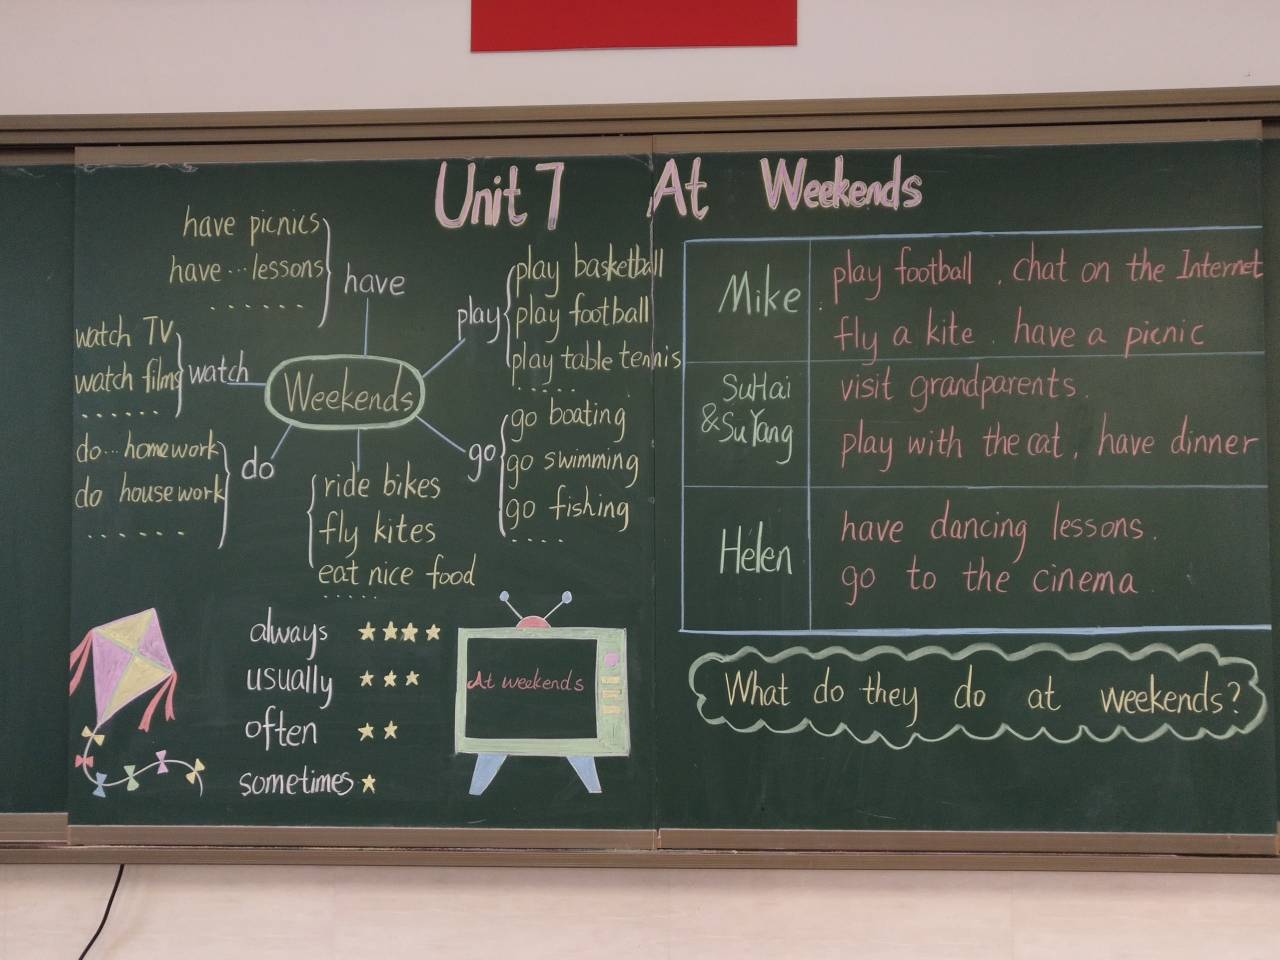 Unit 7 At Weekends
have picnics
have...lessons
......
have
watch TV
watch films
......
watch
do...homework
do housework
......
do
Weekends
play
play basketball
play football
play table tennis
.....
go
go boating
go swimming
go fishing
....
ride bikes
fly kites
eat nice food
.....
always ★★★★
usually ★★★
often ★★
sometimes ★
At weekends
Mike
play football, chat on the Internet
fly a kite, have a picnic
SuHai
&SuYang
visit grandparents,
play with the cat, have dinner
Helen
have dancing lessons,
go to the cinema
What do they do at weekends?